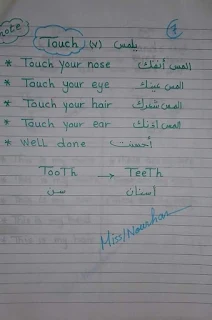 note
Touch (v) يلمس
* Touch your nose المس أنفك
* Touch your eye المس عينك
* Touch your hair المس شعرك
* Touch your ear المس أذنك
* Well done أحسنت
TooTh → TeeTh
سن أسنان
Miss/Nourhan